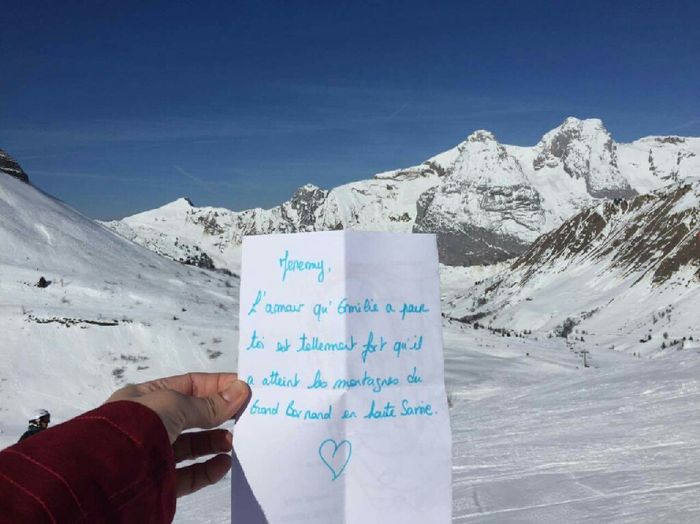 Jeremy,
L'amour qu'Emilie a pour
toi est tellement fort qu'il
a atteint les montagnes du
Grand Bornand en haute Savoie.